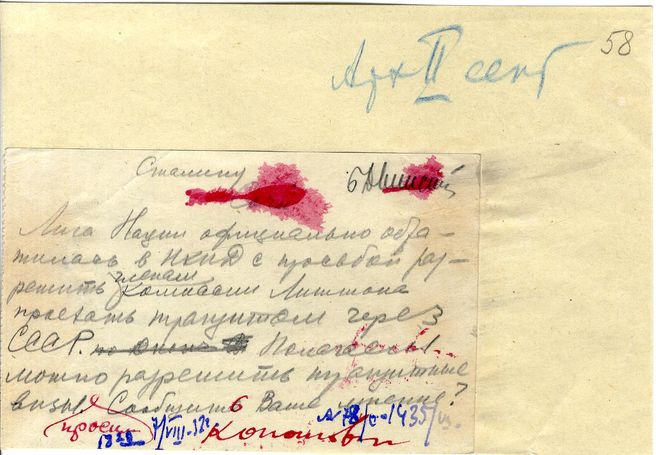 58
Арх II сект
Сталину
Лига Наций официально обра-
тилась в НКИД с просьбой раз-
решить членам Комиссии Литтона
проехать транзитом через
СССР. Полагаем
можно разрешить транзитные
визы. Сообщите Ваше мнение?
7/VIII-32г.
Каганович